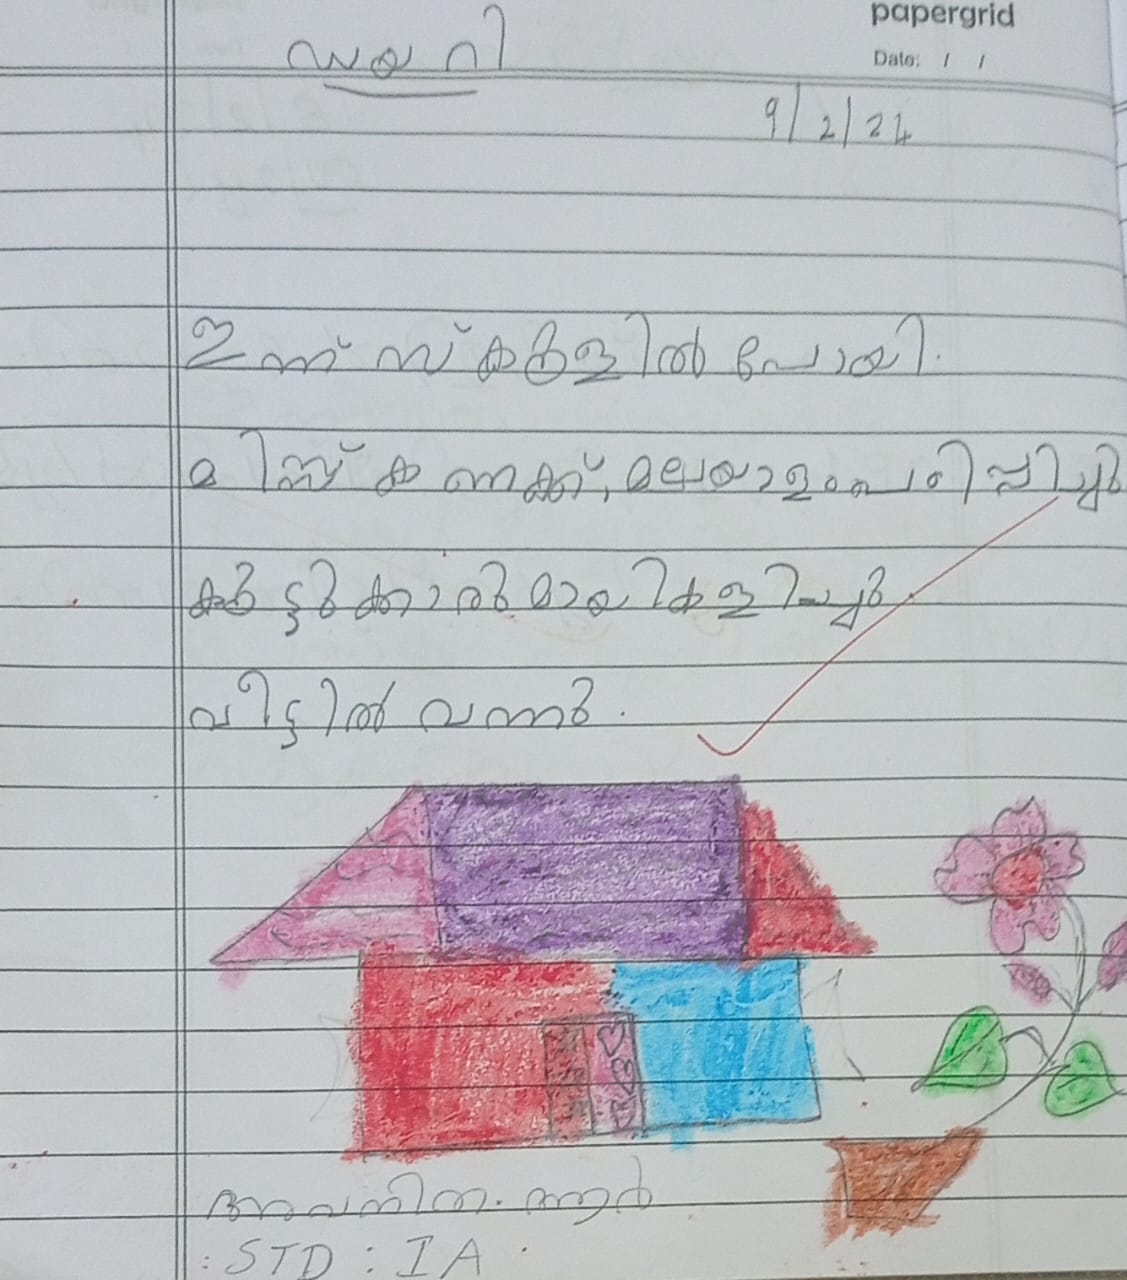 ഡയറി
papergrid
Date: / /
9/2/24
ഇന്ന് സ്കൂളിൽ പോയി.
മിസ്സ് കണക്ക്, മലയാളം പഠിപ്പിച്ചു
കൂട്ടുകാരുമായി കളിച്ചു
വീട്ടിൽ വന്നു.
STD : I A